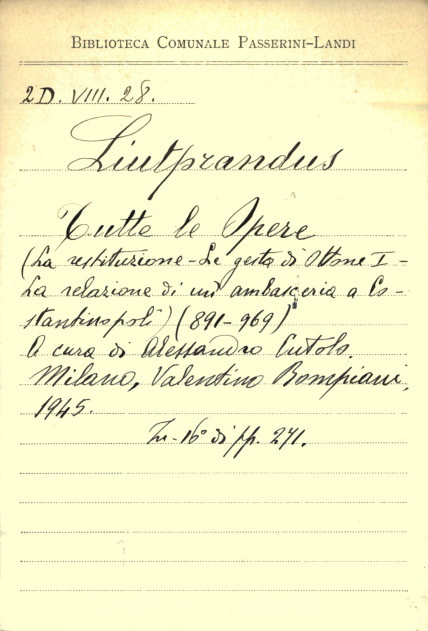 BIBLIOTECA COMUNALE PASSERINI-LANDI
2D. VIII. 28.
Liutprandus
Tutte le Opere
(La restituzione - Le gesta di Ottone I -
La relazione di un' ambasceria a Co-
stantinopoli) (891-969)
A cura di Alessandro Cutolo.
Milano, Valentino Bompiani,
1945.
In-16° di pp. 271.